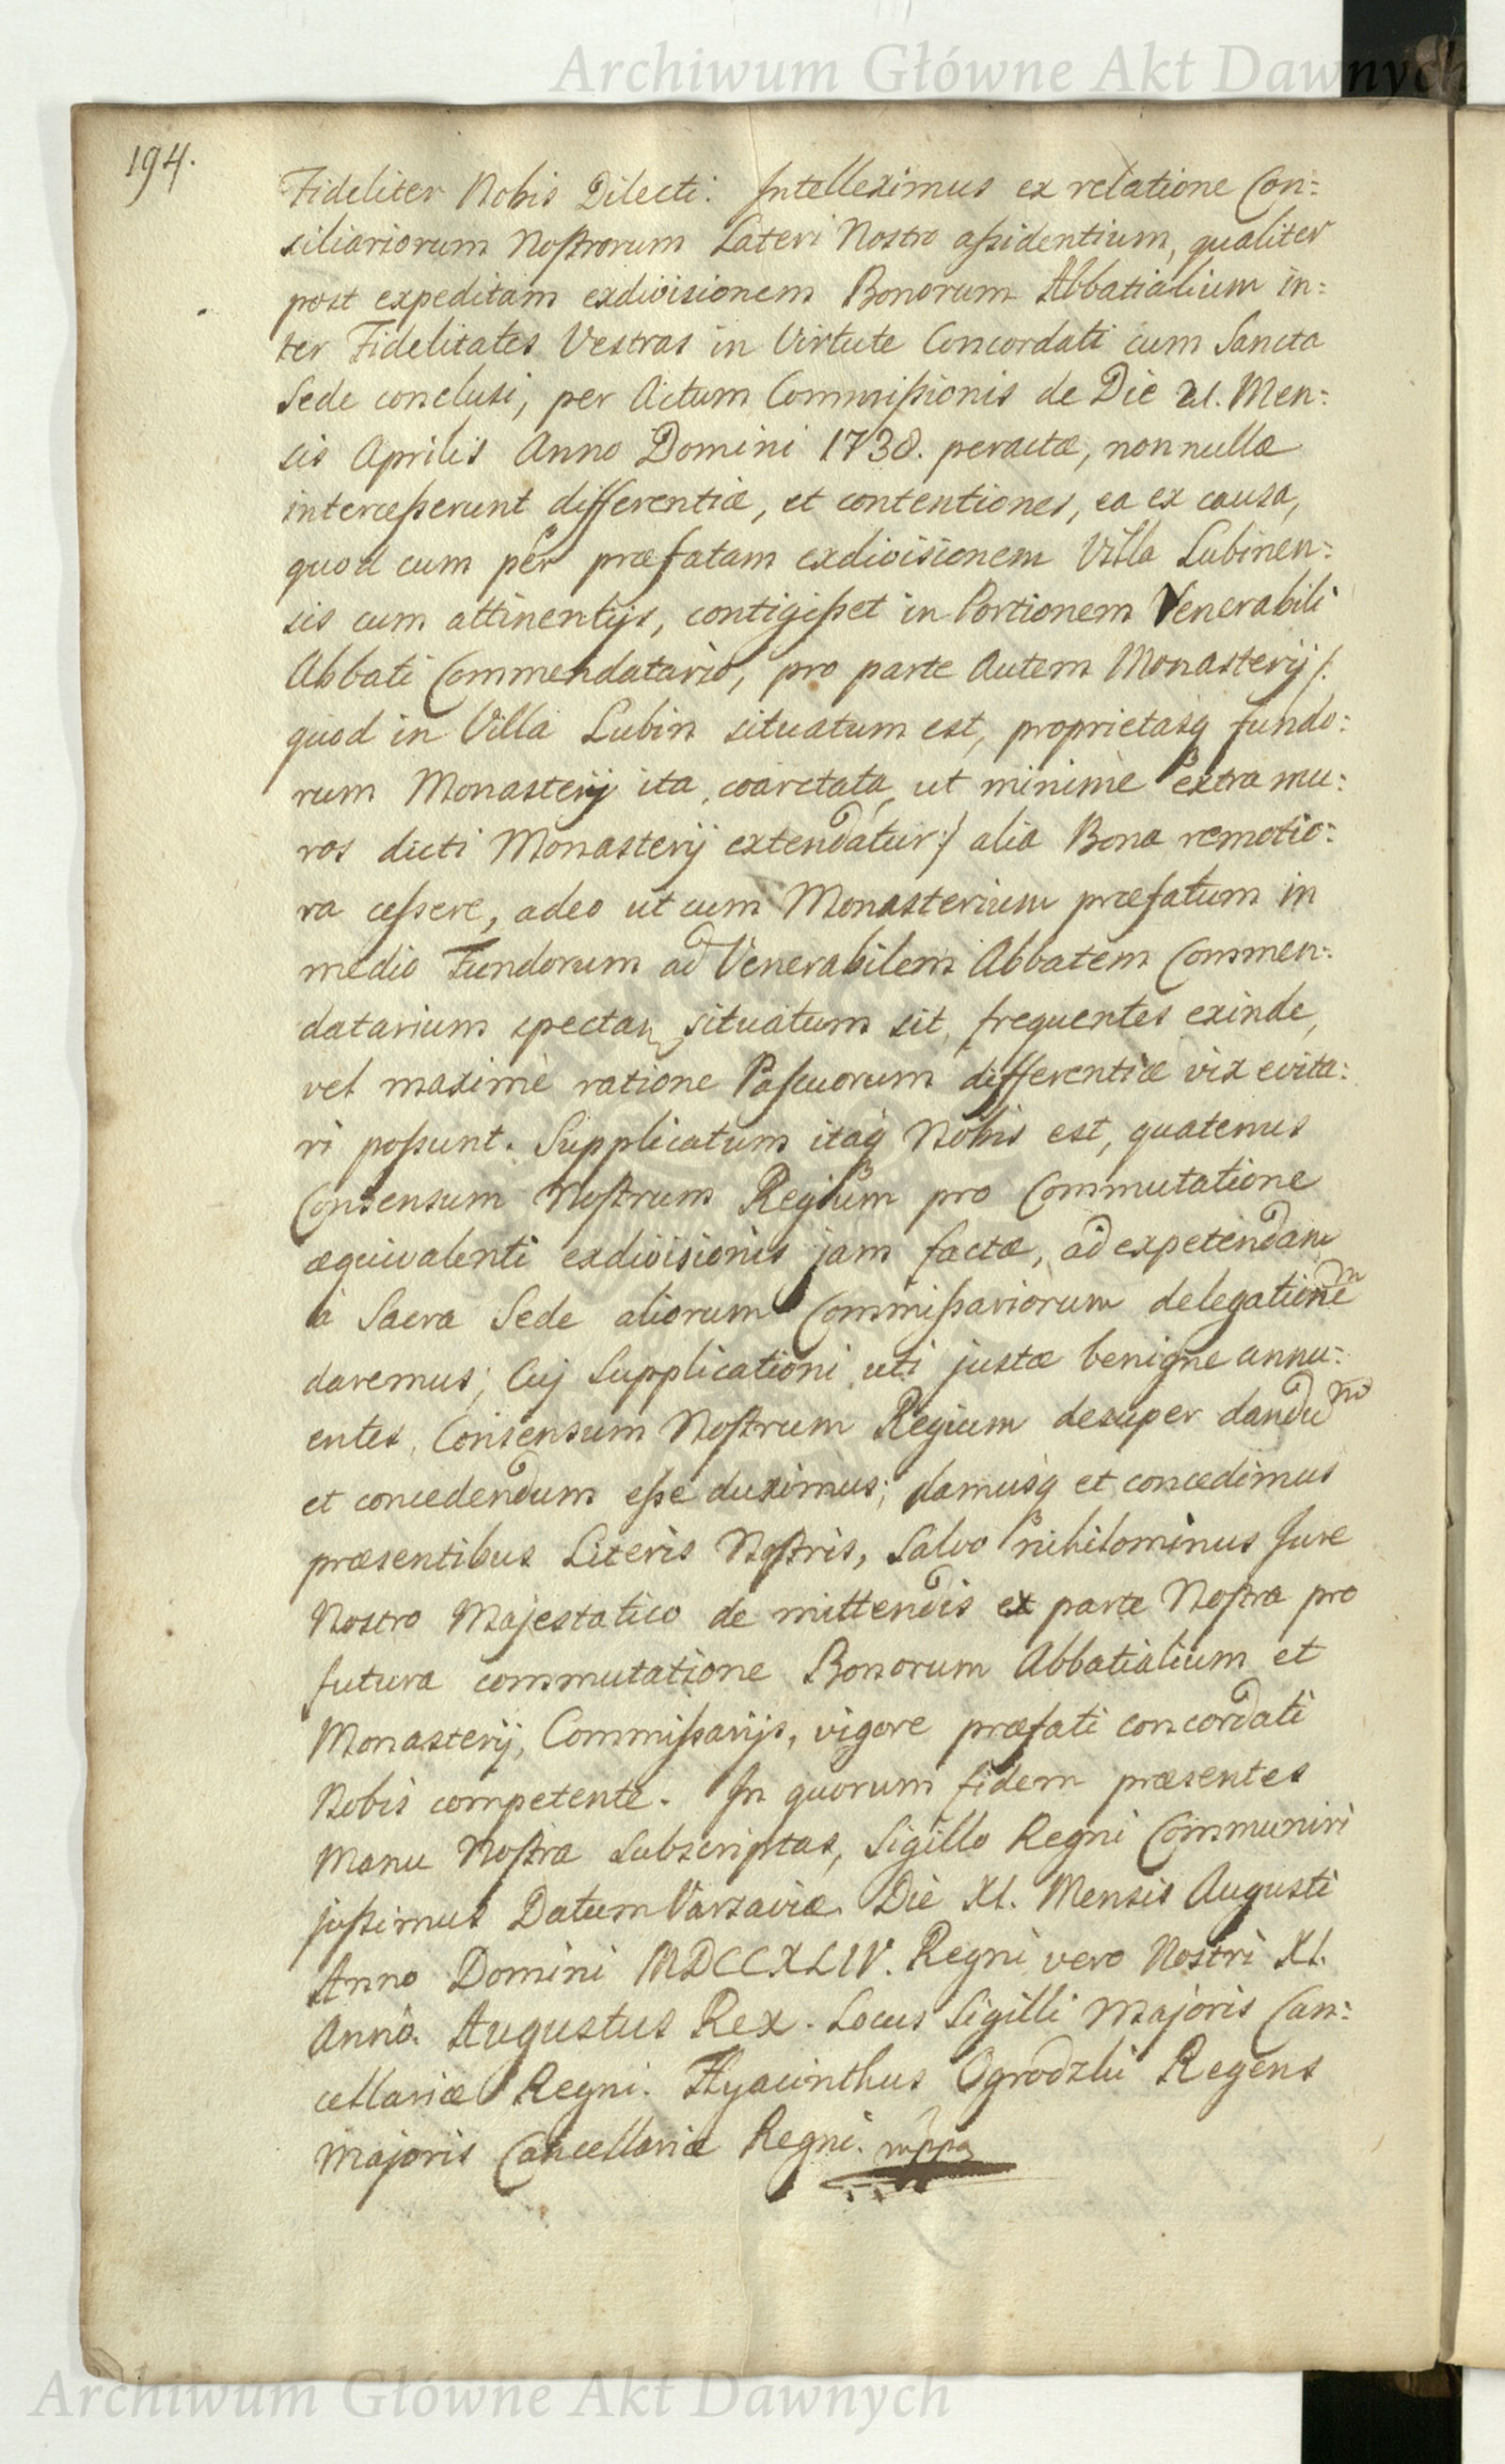 Archiwum Główne Akt Dawnych
194.
Fideliter Nobis Dilecti: Intelleximus ex relatione Con:
siliariorum Nostrorum Lateri Nostro assidentium, qualiter
post expeditam exdivisionem Bonorum Abbatialium in:
ter Fidelitates Vestras in Virtute Concordati cum Sancta
Sede conclusi, per Actum Commissionis de Die Men:
sis Aprilis Anno Domini 1738. peractæ, nonnullæ
intercesserunt differentiæ, et contentiones, ea ex causa,
quod cum per præfatam exdivisionem Villa Lubinen:
sis cum attinentijs, contigisset in Portionem Venerabili
Abbati Commendatario, pro parte Autem Monasterij /:
quod in Villa Lubin situatum est, proprietasq fundo:
rum Monasterij ita coarctata, ut minime extra mu:
ros dicti Monasterij extendatur:/ alia Bona remotio:
ra cessere, adeo ut cum Monasterium præfatum in
medio Fundorum ad Venerabilem Abbatem Commen:
datarium situatum sit, frequentes exinde,
vel maximè ratione Pascuorum differentiæ vix evita:
ri possunt. Supplicatum itaq Nobis est, quatenus
Consensum Nostrum Regium pro Commutatione
æquivalenti exdivisionis jam factæ, ad expetendam
à Sacra Sede aliorum Commissariorum delegationem
daremus; Cuj Supplicationi uti justæ benigne annu:
entes, Consensum Nostrum Regium desuper dandum
et concedendum esse duximus; damusq et concedimus
præsentibus Literis Nostris, Salvo nihilominus Jure
Nostro Majestatico de mittendis ex parte Nostra pro
futura commutatione Bonorum Abbatialium et
Monasterij, Commissarijs, vigore præfati concordati
Nobis competente. In quorum fidem præsentes
Manu Nostra Subscriptas, Sigillo Regni Communiri
jussimus Datum Varsaviæ Die XI. Mensis Augusti
Anno Domini MDCCXLIV. Regni vero Nostri XI.
Anno. Augustus Rex. Locus Sigilli Majoris Can:
cellariæ Regni. Hyacinthus Ogrodzki Regens
Majoris Cancellariæ Regni. mppa
Archiwum Główne Akt Dawnych